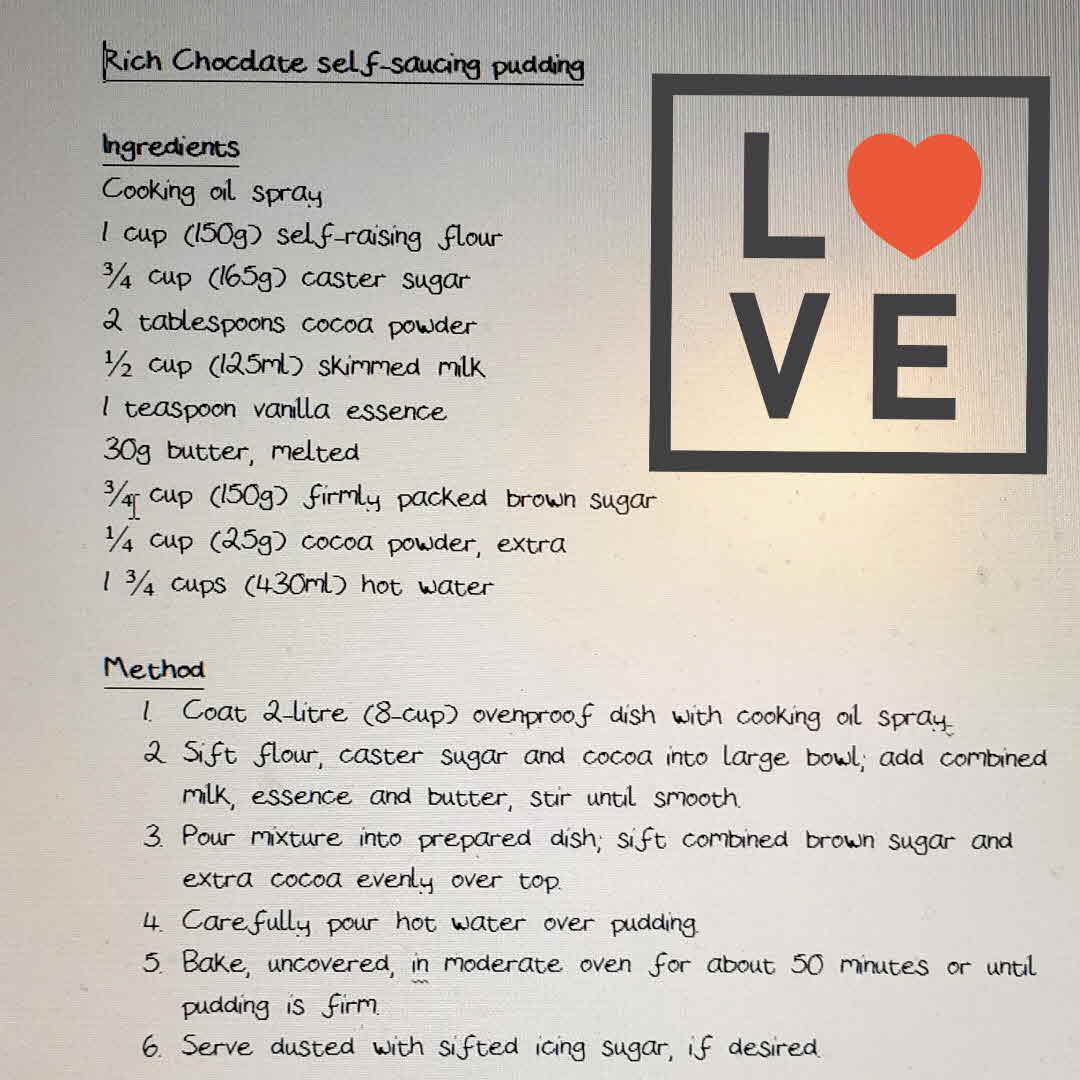 Rich Chocolate self-saucing pudding
L VE
Ingredients
Cooking oil spray
1 cup (150g) self-raising flour
3/4 cup (165g) caster sugar
2 tablespoons cocoa powder
1/2 cup (125ml) skimmed milk
1 teaspoon vanilla essence
30g butter, melted
3/4 cup (150g) firmly packed brown sugar
1/4 cup (25g) cocoa powder, extra
1 3/4 cups (430ml) hot water
Method
1. Coat 2-litre (8-cup) ovenproof dish with cooking oil spray.
2. Sift flour, caster sugar and cocoa into large bowl; add combined
milk, essence and butter, stir until smooth.
3. Pour mixture into prepared dish; sift combined brown sugar and
extra cocoa evenly over top.
4. Carefully pour hot water over pudding.
5. Bake, uncovered, in moderate oven for about 50 minutes or until
pudding is firm.
6. Serve dusted with sifted icing sugar, if desired.